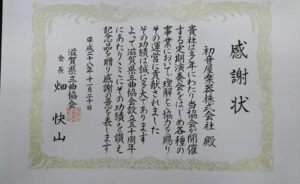 感謝状
初音屋楽器株式会社 殿
貴社は多年にわたり当協会が開催
する定期演奏会をはじめ各種の
事業において理解とご協力を賜り
その運営に貢献されました
その功績は誠に多大であります
よって滋賀県三曲協会設立五十周年
にあたりここにその功績を讃え
記念品を贈り感謝の意を表します
平成二十八年十一月二十日
滋賀県三曲協会
会長 畑 快山